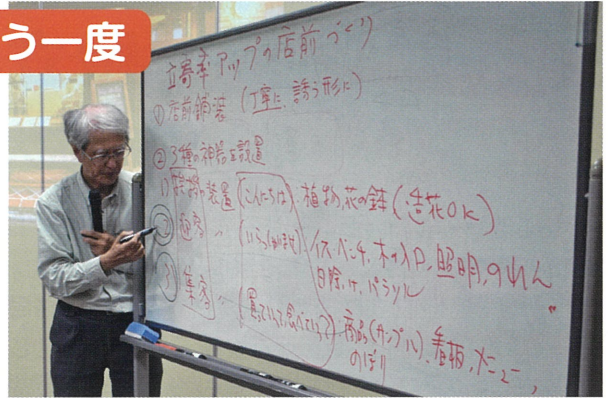 う一度
立寄率アップの店前づくり
① 店前舗装（丁寧に、誘う形に）
② 3種の神器を設置
1) 装置（こんにちは）・植物、花の鉢（造花OK）
② 迎客 〃（いらっしゃいませ）イス・ベンチ、木の入口、照明、のれん
日除け、パラソル
③ 集客 〃（買っていって、食べていって）・商品（サンプル）、看板、メニュー、
のぼり